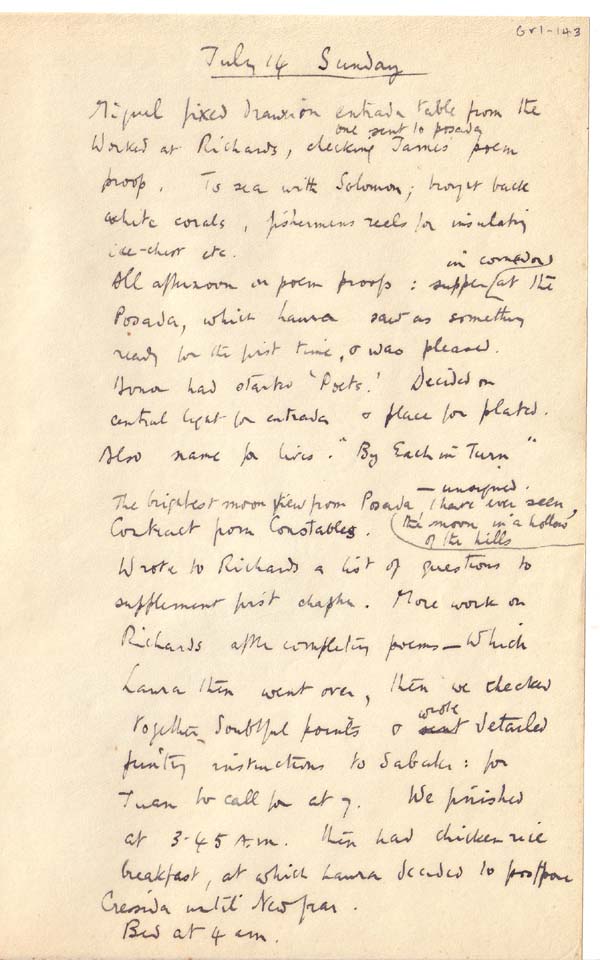 Gr1-143
July 14 Sunday
Miguel fixed drawer on entrada table from the
one sent to posada
Worked at Richards, checking James' poem
proof. To sea with Solomon; brought back
white corals, fishermens reels for insulating
ice-chest etc.
in comedor
All afternoon on poem proofs: supper at the
Posada, which Laura saw as something
ready for the first time, & was pleased.
Honor had started 'Poets.' Decided on
central light for entrada & place for plates.
Also name for lives. "By Each in Turn"
— unsigned.
The brightest moon view from Posada I have ever seen,
Contract from Constables. (the moon in a hollow
of the hills
Wrote to Richards a list of questions to
supplement first chapter. More work on
Richards after completing poems — Which
Laura then went over, then we checked
together doubtful points & wrote detailed
printing instructions to Sabater: for
Juan to call for at 7. We finished
at 3-45 A.m. Then had chicken rice
breakfast, at which Laura decided to postpone
Cressida until New Year.
Bed at 4 am.